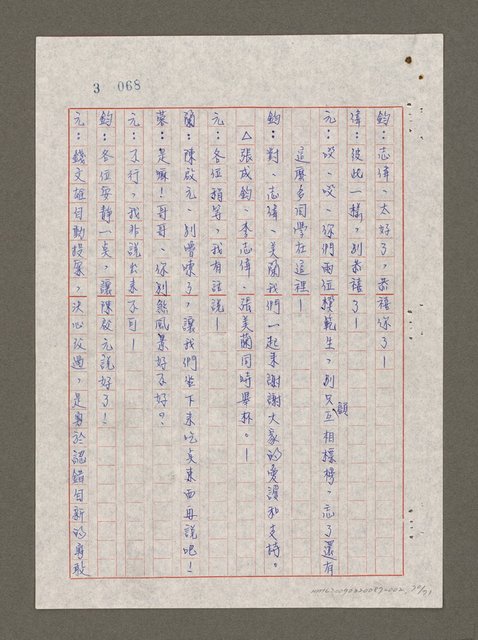 3 068
鈞：志偉、太好了，恭禧你了！
偉：彼此一樣，別恭禧了！
元：哎、哎、你們兩位模範生，別只顧互相標榜，忘了還有
這麼多同學在這裡！
鈞：對、志偉、美蘭我們一起來謝謝大家的愛護和支持。
△張成鈞、李志偉、張美蘭同時舉杯。！
元：各位稍等，我有話說！
蘭：陳啟元、別嚕嗦了，讓我們坐下來吃點東西再說吧！
蓉：是嘛！哥哥、你別煞風景好不好？
元：不行，我非說出來不可！
鈞：各位安靜一點，讓陳啟元說好了！
元：錢文雄自動投案，決心改過，是勇於認錯自新的勇敢